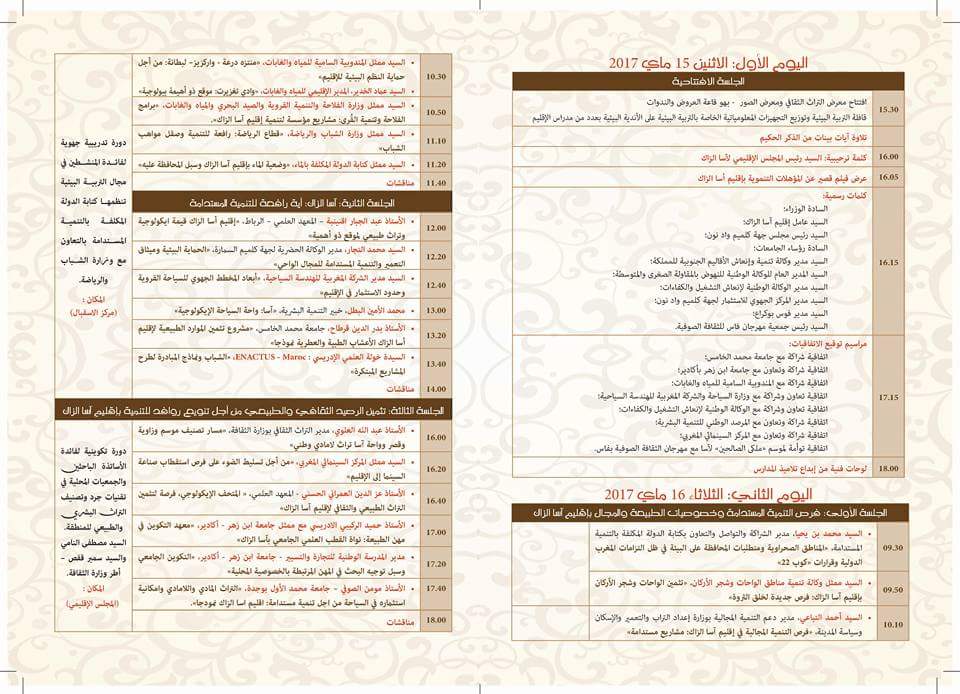 اليوم الأول: الاثنين 15 ماي 2017
الجلسة الافتتاحية
15.30
افتتاح معرض التراث الثقافي ومعرض الصور - بهو قاعة العروض والندوات
قافلة التربية البيئية وتوزيع التجهيزات المعلوماتية الخاصة بالتربية البيئية على الأندية البيئية بعدد من مدراس الإقليم
تلاوة آيات بينات من الذكر الحكيم
16.00
كلمة ترحيبية: السيد رئيس المجلس الإقليمي لآسا الزاك
16.05
عرض فيلم قصير عن المؤهلات التنموية بإقليم أسا الزاك
16.15
كلمات رسمية:
السادة الوزراء؛
السيد عامل إقليم آسا الزاك؛
السيد رئيس مجلس جهة كلميم واد نون؛
السادة رؤساء الجامعات؛
السيد مدير وكالة تنمية وإنعاش الأقاليم الجنوبية للمملكة؛
السيد المدير العام للوكالة الوطنية للنهوض بالمقاولة الصغرى والمتوسطة؛
السيد مدير الوكالة الوطنية لإنعاش التشغيل والكفاءات؛
السيد مدير المركز الجهوي للاستثمار لجهة كلميم واد نون؛
السيد مدير فوس بوكراع؛
السيد رئيس جمعية مهرجان فاس للثقافة الصوفية.
17.15
مراسيم توقيع الاتفاقيات:
اتفاقية شراكة مع جامعة محمد الخامس؛
اتفاقية شراكة وتعاون مع جامعة ابن زهر بأكادير؛
اتفاقية شراكة مع المندوبية السامية للمياه والغابات؛
اتفاقية تعاون وشراكة مع وزارة السياحة والشركة المغربية للهندسة السياحية؛
اتفاقية تعاون وشراكة مع الوكالة الوطنية لإنعاش التشغيل والكفاءات؛
اتفاقية شراكة وتعاون مع المرصد الوطني للتنمية البشرية؛
اتفاقية شراكة وتعاون مع المركز السينمائي المغربي؛
اتفاقية توأمة لموسم «ملكى الصالحين» لآسا مع مهرجان الثقافة الصوفية بفاس.
18.00
لوحات فنية من إبداع تلاميذ المدارس
اليوم الثاني: الثلاثاء 16 ماي 2017
الجلسة الأولى: فرص التنمية المستدامة وخصوصيات الطبيعة والمجال بإقليم آسا الزاك
09.30
السيد محمد بن يحيا، مدير الشراكة والتواصل والتعاون بكتابة الدولة المكلفة بالتنمية
المستدامة، «المناطق الصحراوية ومتطلبات المحافظة على البيئة في ظل التزامات المغرب
الدولية وقرارات «كوب 22»
09.50
السيد ممثل وكالة تنمية مناطق الواحات وشجر الأركان، «تثمين الواحات وشجر الأركان
بإقليم آسا الزاك: فرص جديدة لخلق الثروة»
10.10
السيد أحمد التباعي، مدير دعم التنمية المجالية بوزارة إعداد التراب والتعمير والإسكان
وسياسة المدينة، «فرص التنمية المجالية في إقليم آسا الزاك: مشاريع مستدامة»
10.30
السيد ممثل المندوبية السامية للمياه والغابات، «منتزه درعة - واركزيز- لبطانة: من أجل
حماية النظم البيئية للإقليم»
السيد عماد الخدير، المدير الإقليمي للمياه والغابات، «وادي تغزيرت: موقع ذو أهمية بيولوجية»
10.50
السيد ممثل وزارة الفلاحة والتنمية القروية والصيد البحري والمياه والغابات، «برامج
الفلاحة وتنمية القُرى: مشاريع مؤسسة لتنمية إقليم آسا الزاك».
11.10
السيد ممثل وزارة الشباب والرياضة، «قطاع الرياضة: رافعة للتنمية وصقل مواهب
الشباب»
11.20
السيد ممثل كتابة الدولة المكلفة بالماء، «وضعية الماء بإقليم آسا الزاك وسبل المحافظة عليه»
11.40
مناقشات
الجلسة الثانية: آسا الزاك: أية رافعة للتنمية المستدامة
12.00
الأستاذ عبد الجبار اقنينبة - المعهد العلمي - الرباط، «إقليم آسا الزاك قيمة إيكولوجية
وتراث طبيعي لموقع ذو أهمية»
12.20
السيد محمد النجار، مدير الوكالة الحضرية لجهة كلميم السمارة، «الحماية البيئية وميثاق
التعمير والتنمية المستدامة للمجال الواحي»
12.40
السيد مدير الشركة المغربية للهندسة السياحية، «أبعاد المخطط الجهوي للسياحة القروية
وحدود الاستثمار في الإقليم»
13.00
محمد الأمين البطل، خبير التنمية البشرية، «آسا: واحة السياحة الإيكولوجية»
13.20
الأستاذ بدر الدين قرطاح، جامعة محمد الخامس، «مشروع تثمين الموارد الطبيعية لإقليم
آسا الزاك الأعشاب الطبية والعطرية نموذجا»
13.40
السيدة خولة العلمي الإدريسي : ENACTUS - Maroc، «الشباب ونماذج المبادرة لطرح
المشاريع المبتكرة»
14.00
مناقشات
الجلسة الثالثة: تثمين الرصيد الثقافي والطبيعي من أجل تنويع روافد للتنمية بإقليم آسا الزاك
16.00
الأستاذ عبد الله العلوي، مدير التراث الثقافي بوزارة الثقافة، «مسار تصنيف موسم وزاوية
وقصر وواحة آسا تراث لامادي وطني»
16.20
السيد ممثل المركز السينمائي المغربي، «من أجل تسليط الضوء على فرص استقطاب صناعة
السينما إلى الإقليم»
16.40
الأستاذ عز الدين العمراني الحسني - المعهد العلمي، « المتحف الإيكولوجي، فرصة لتثمين
التراث الطبيعي والثقافي لإقليم آسا الزاك»
17.00
الأستاذ حميد الركيبي الادريسي مع ممثل جامعة ابن زهر - أكادير، «معهد التكوين في
مهن الطبيعة: نواة القطب العلمي الجامعي بآسا الزاك»
17.20
مدير المدرسة الوطنية للتجارة والتسيير - جامعة ابن زهر - أكادير، «التكوين الجامعي
وسبل توجيه البحث في المهن المرتبطة بالخصوصية المحلية»
17.40
الأستاذ مومن الصوفي - جامعة محمد الأول بوجدة، «التراث المادي واللامادي وإمكانية
استثماره في السياحة من اجل تنمية مستدامة: اقليم اسا الزاك نموذجا».
18.00
مناقشات
دورة تدريبية جهوية
لفائدة المنشطين في
مجال التربية البيئية
تنظمها كتابة الدولة
المكلفة بالتنمية
المستدامة بالتعاون
مع وزارة الشباب
والرياضة.
المكان :
(مركز الاستقبال)
دورة تكوينية لفائدة
الأساتذة الباحثين
والجمعيات المحلية في
تقنيات جرد وتصنيف
التراث البشري
والطبيعي للمنطقة.
السيد مصطفى النامي
والسيد سمير قفص -
أطر وزارة الثقافة.
المكان :
(المجلس الإقليمي)